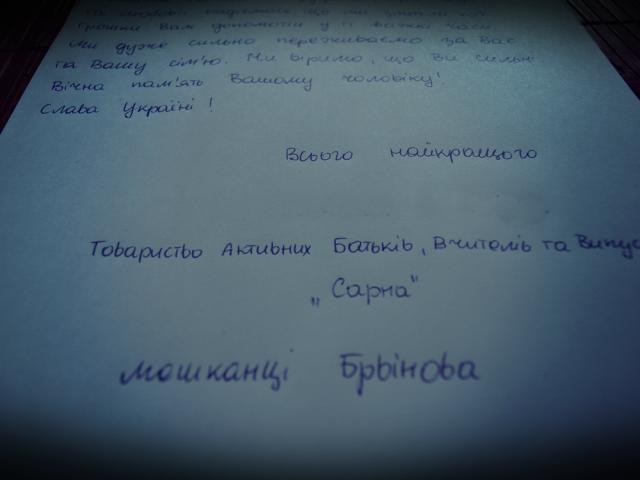 та любові. Надіємось що ми змогли хоч
трошки Вам допомогти у ті важкі часи
Ми дуже сильно переживаємо за Вас
та Вашу сім'ю. Ми віримо, що Ви сильні
Вічна пам'ять Вашому чоловіку!
Слава Україні!
Всього найкращого
Товариство Активних Батьків, Вчителів та Випус
„Сарна"
мошканці Брыінова